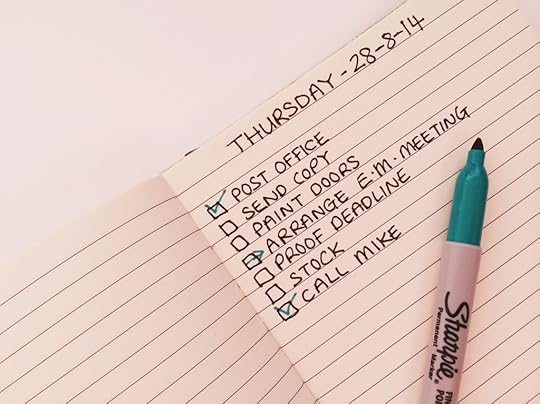 THURSDAY - 28-8-14
POST OFFICE
SEND COPY
PAINT DOORS
ARRANGE E.M. MEETING
PROOF DEADLINE
STOCK
CALL MIKE
Sharpie®
Permanent Marker
FINE
PO